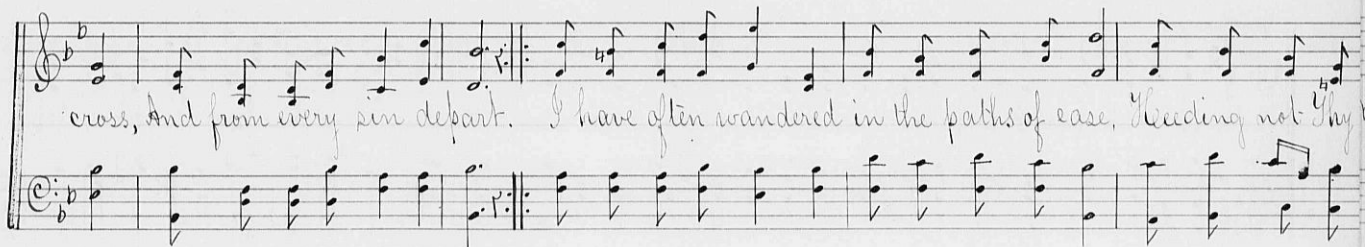 cross, And from every sin depart. I have often wandered in the paths of ease, Heeding not Thy